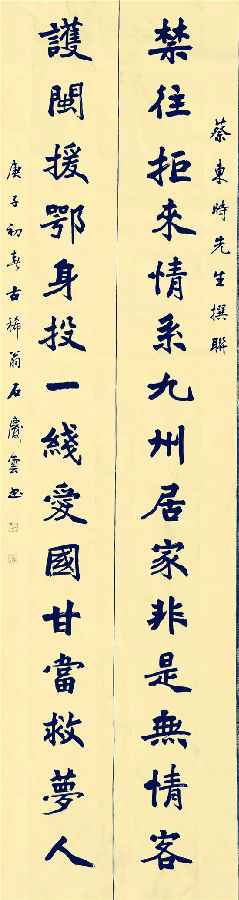 蔡東時先生撰聯
禁往拒來情系九州居家非是無情客
護閩援鄂身投一綫愛國甘當救夢人
庚子初春古稀翁石慶雲书